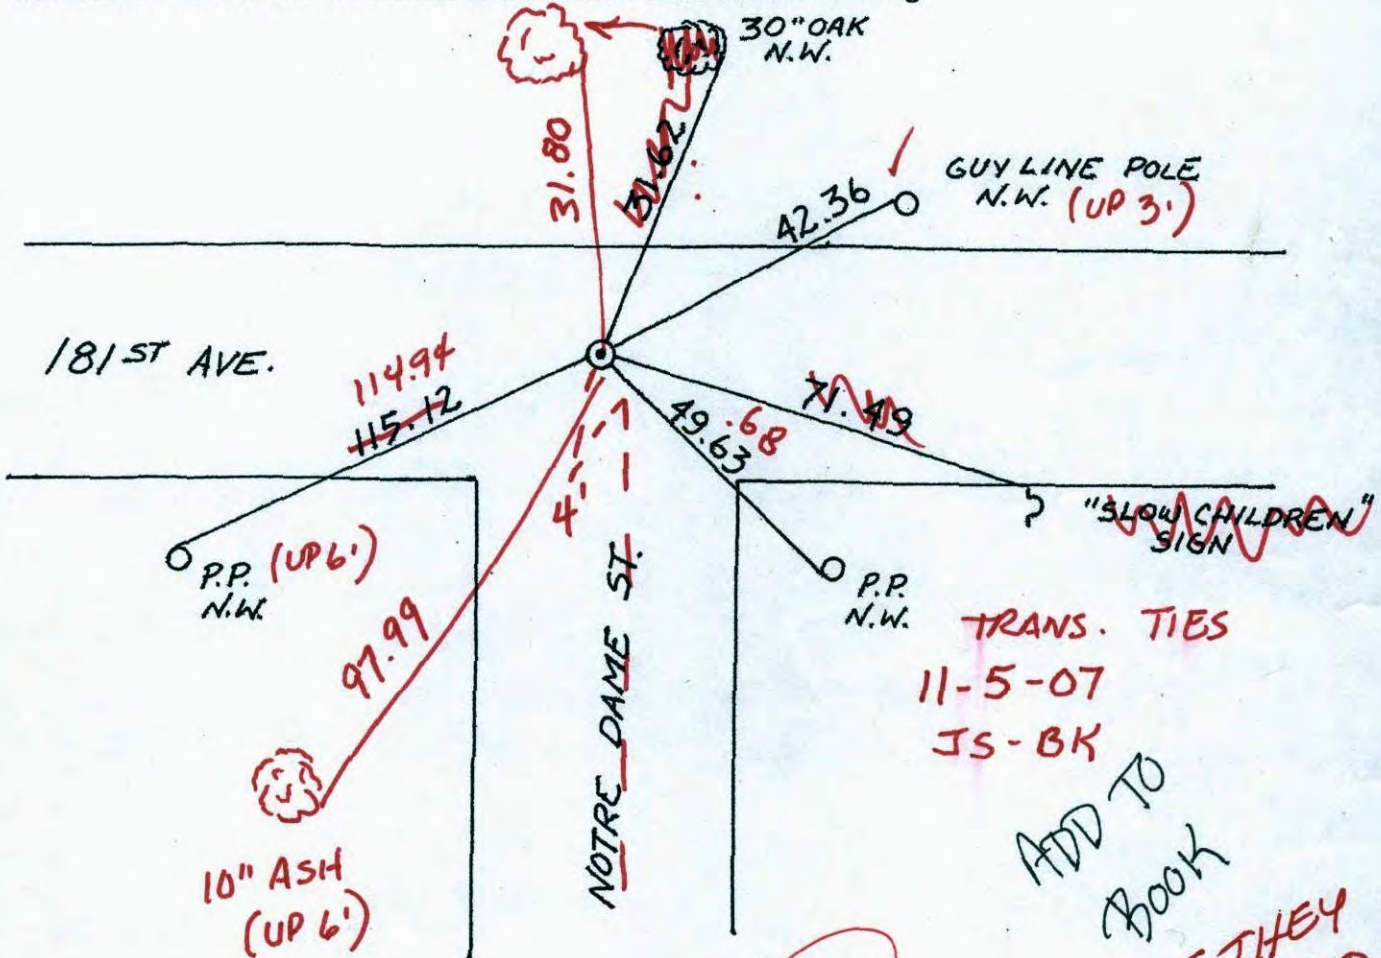 30" OAK
N.W.
31.80
31.62
GUY LINE POLE
N.W. (UP 3')
42.36
181ST AVE.
114.94
115.12
71.49
.68
49.63
4'
"SLOW CHILDREN"
SIGN
P.P. (UP 6')
N.W.
P.P.
N.W.
97.99
NOTRE DAME ST.
TRANS. TIES
11-5-07
JS-BK
ADD TO
BOOK
10" ASH
(UP 6')
THEY